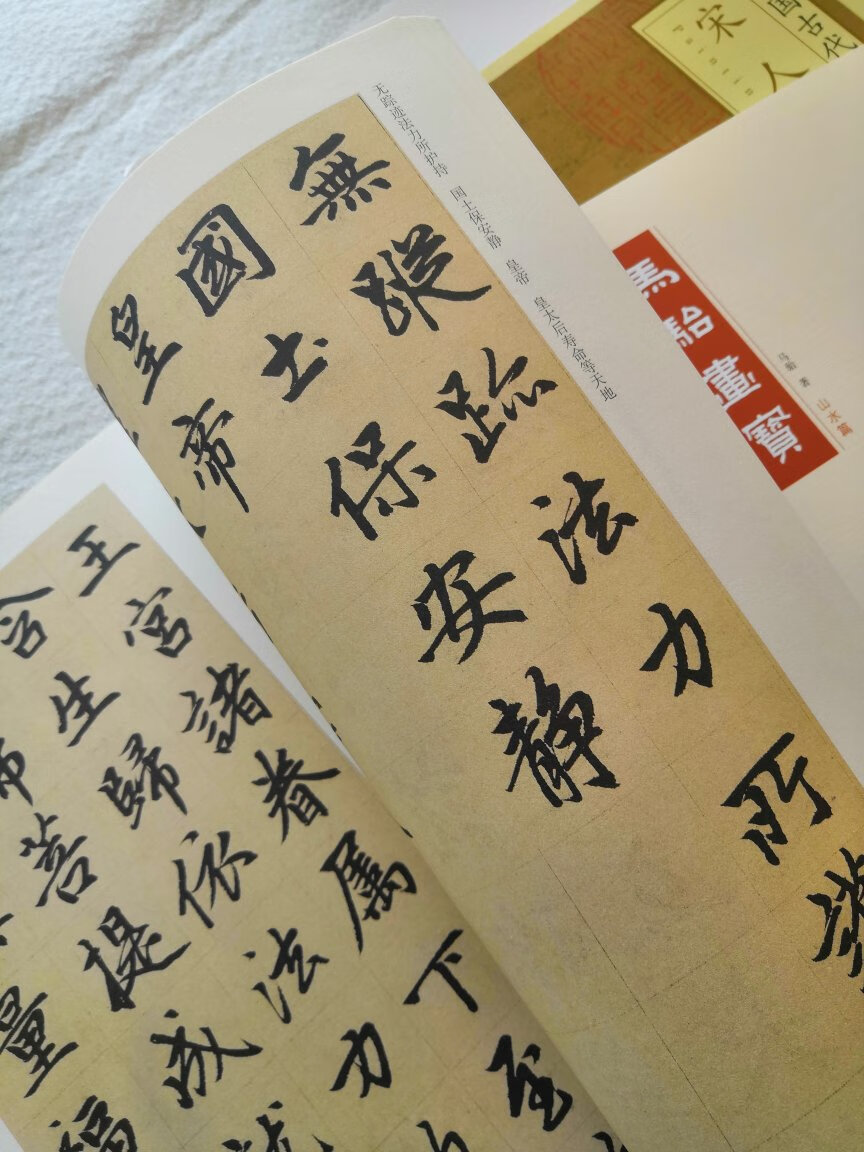 国古代
宋人
馬駘畫寶
马骀 著 山水篇
无踪迹法力所护持 国土保安静 皇帝 皇太后寿命等天地
無蹤跡法力所護
國土保安静
皇帝
王宮諸眷属下至
含生歸依法力
菩提成就
量福